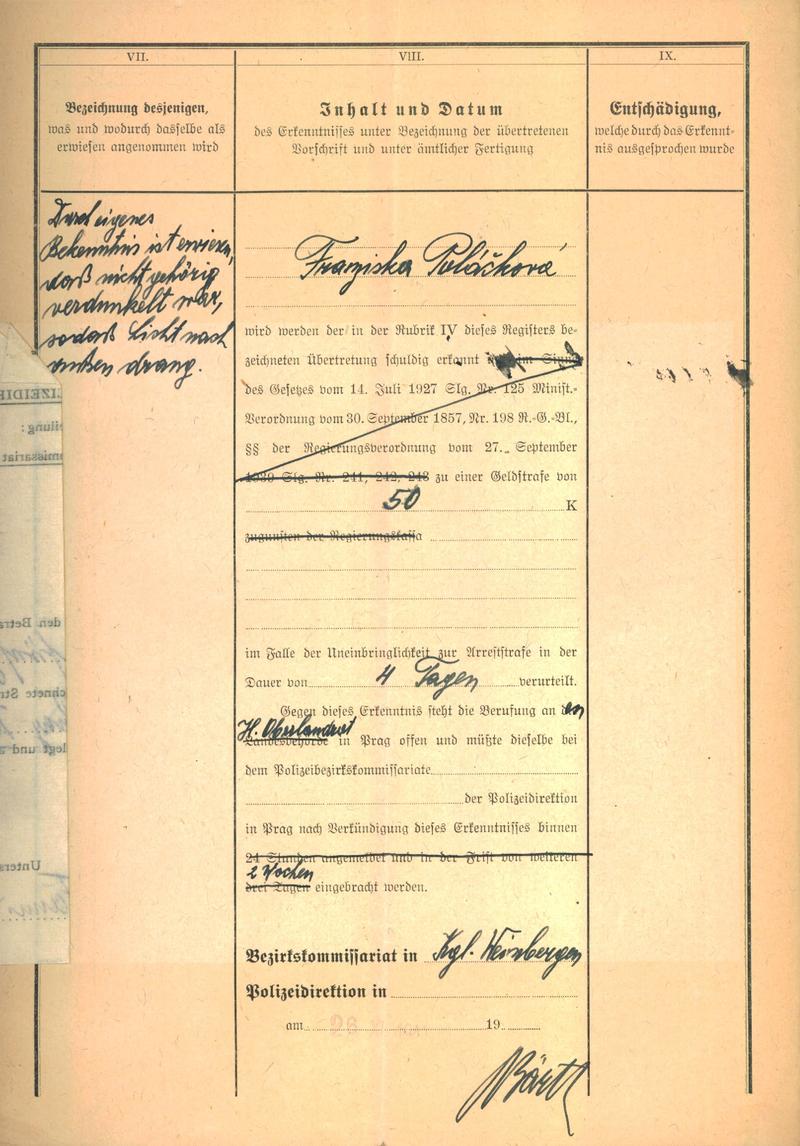 VII.
Bezeichnung desjenigen,
was und wodurch dasselbe als
erwiesen angenommen wird
Durch eigenes
Bekenntnis ist erwiesen,
daß nicht gehörig
verdunkelt war,
sodaß Licht nach
außen drang.
VIII.
Inhalt und Datum
des Erkenntnisses unter Bezeichnung der übertretenen
Vorschrift und unter ämtlicher Fertigung
Franziska Poláčková
wird werden der in der Rubrik IV dieses Registers be-
zeichneten Übertretung schuldig erkannt im Sinne
des Gesetzes vom 14. Juli 1927 Slg. Nr. 125 Minist.-
Verordnung vom 30. September 1857, Nr. 198 R.-G.-Bl.,
§§ der Regierungsverordnung vom 27. September
1939 Slg. Nr. 241, 242, 243 zu einer Geldstrafe von
50 K
zugunsten der Regierungskassa
im Falle der Uneinbringlichkeit zur Arreststrafe in der
Dauer von 4 Tagen verurteilt.
Gegen dieses Erkenntnis steht die Berufung an den
H. Oberlandrat
Landesbehörde in Prag offen und müßte dieselbe bei
dem Polizeibezirkskommissariate
der Polizeidirektion
in Prag nach Verkündigung dieses Erkenntnisses binnen
24 Stunden angemeldet und in der Frist von weiteren
2 Wochen
drei Tagen eingebracht werden.
Bezirkskommissariat in Kgl. Weinbergen
Polizeidirektion in
am 26 19
Bärtl
IX.
Entschädigung,
welche durch das Erkennt-
nis ausgesprochen wurde